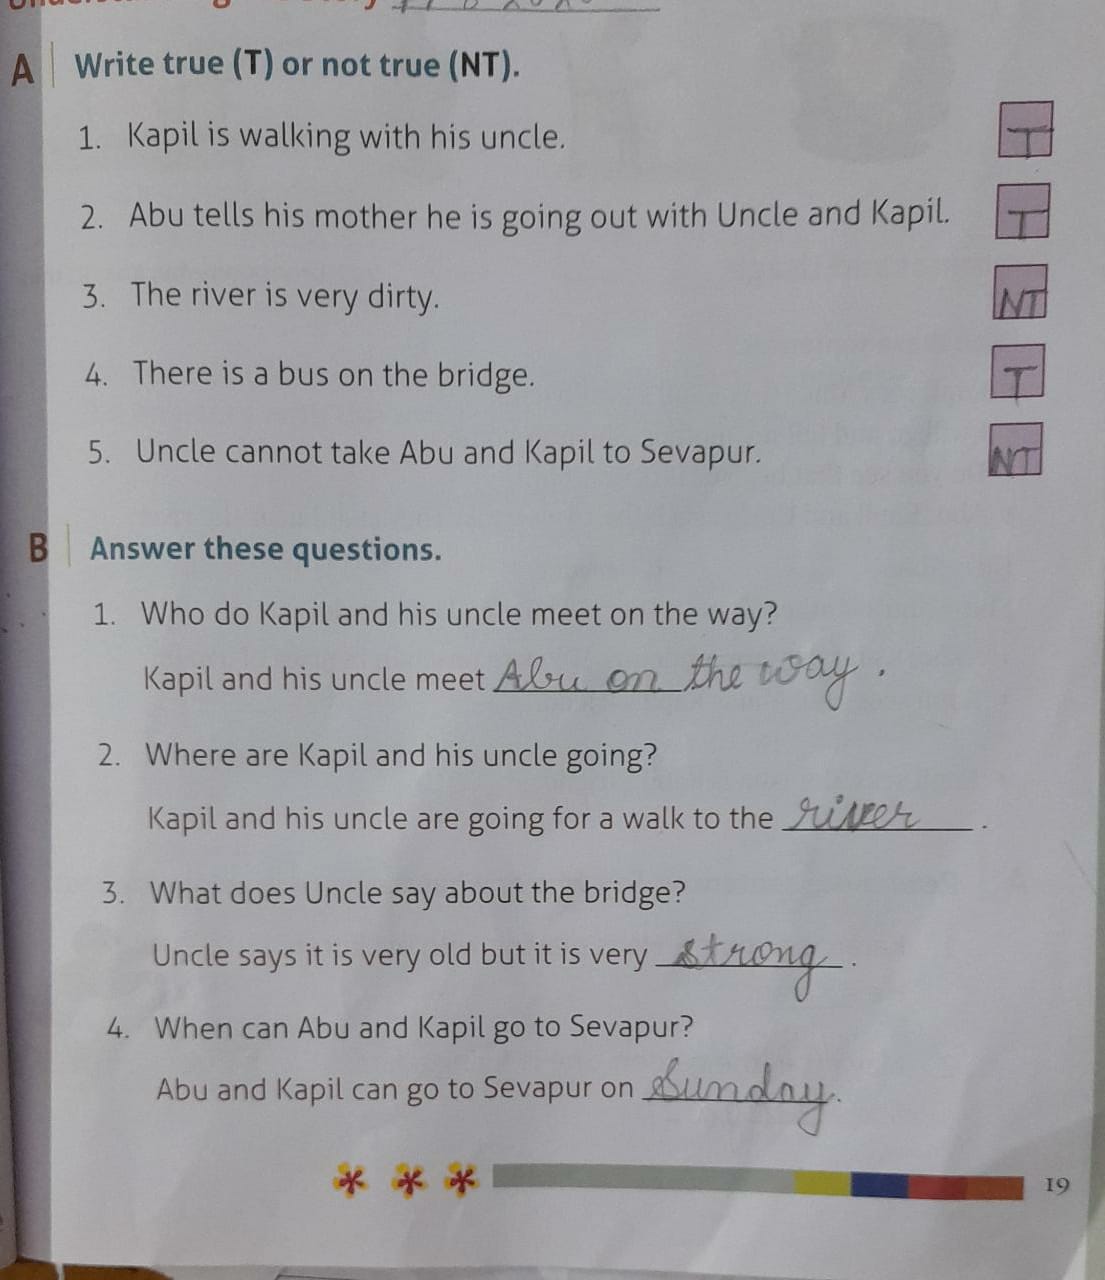 A Write true (T) or not true (NT).
1. Kapil is walking with his uncle. T
2. Abu tells his mother he is going out with Uncle and Kapil. T
3. The river is very dirty. NT
4. There is a bus on the bridge. T
5. Uncle cannot take Abu and Kapil to Sevapur. NT
B Answer these questions.
1. Who do Kapil and his uncle meet on the way?
Kapil and his uncle meet Abu on the way.
2. Where are Kapil and his uncle going?
Kapil and his uncle are going for a walk to the river.
3. What does Uncle say about the bridge?
Uncle says it is very old but it is very strong.
4. When can Abu and Kapil go to Sevapur?
Abu and Kapil can go to Sevapur on Sunday.
19